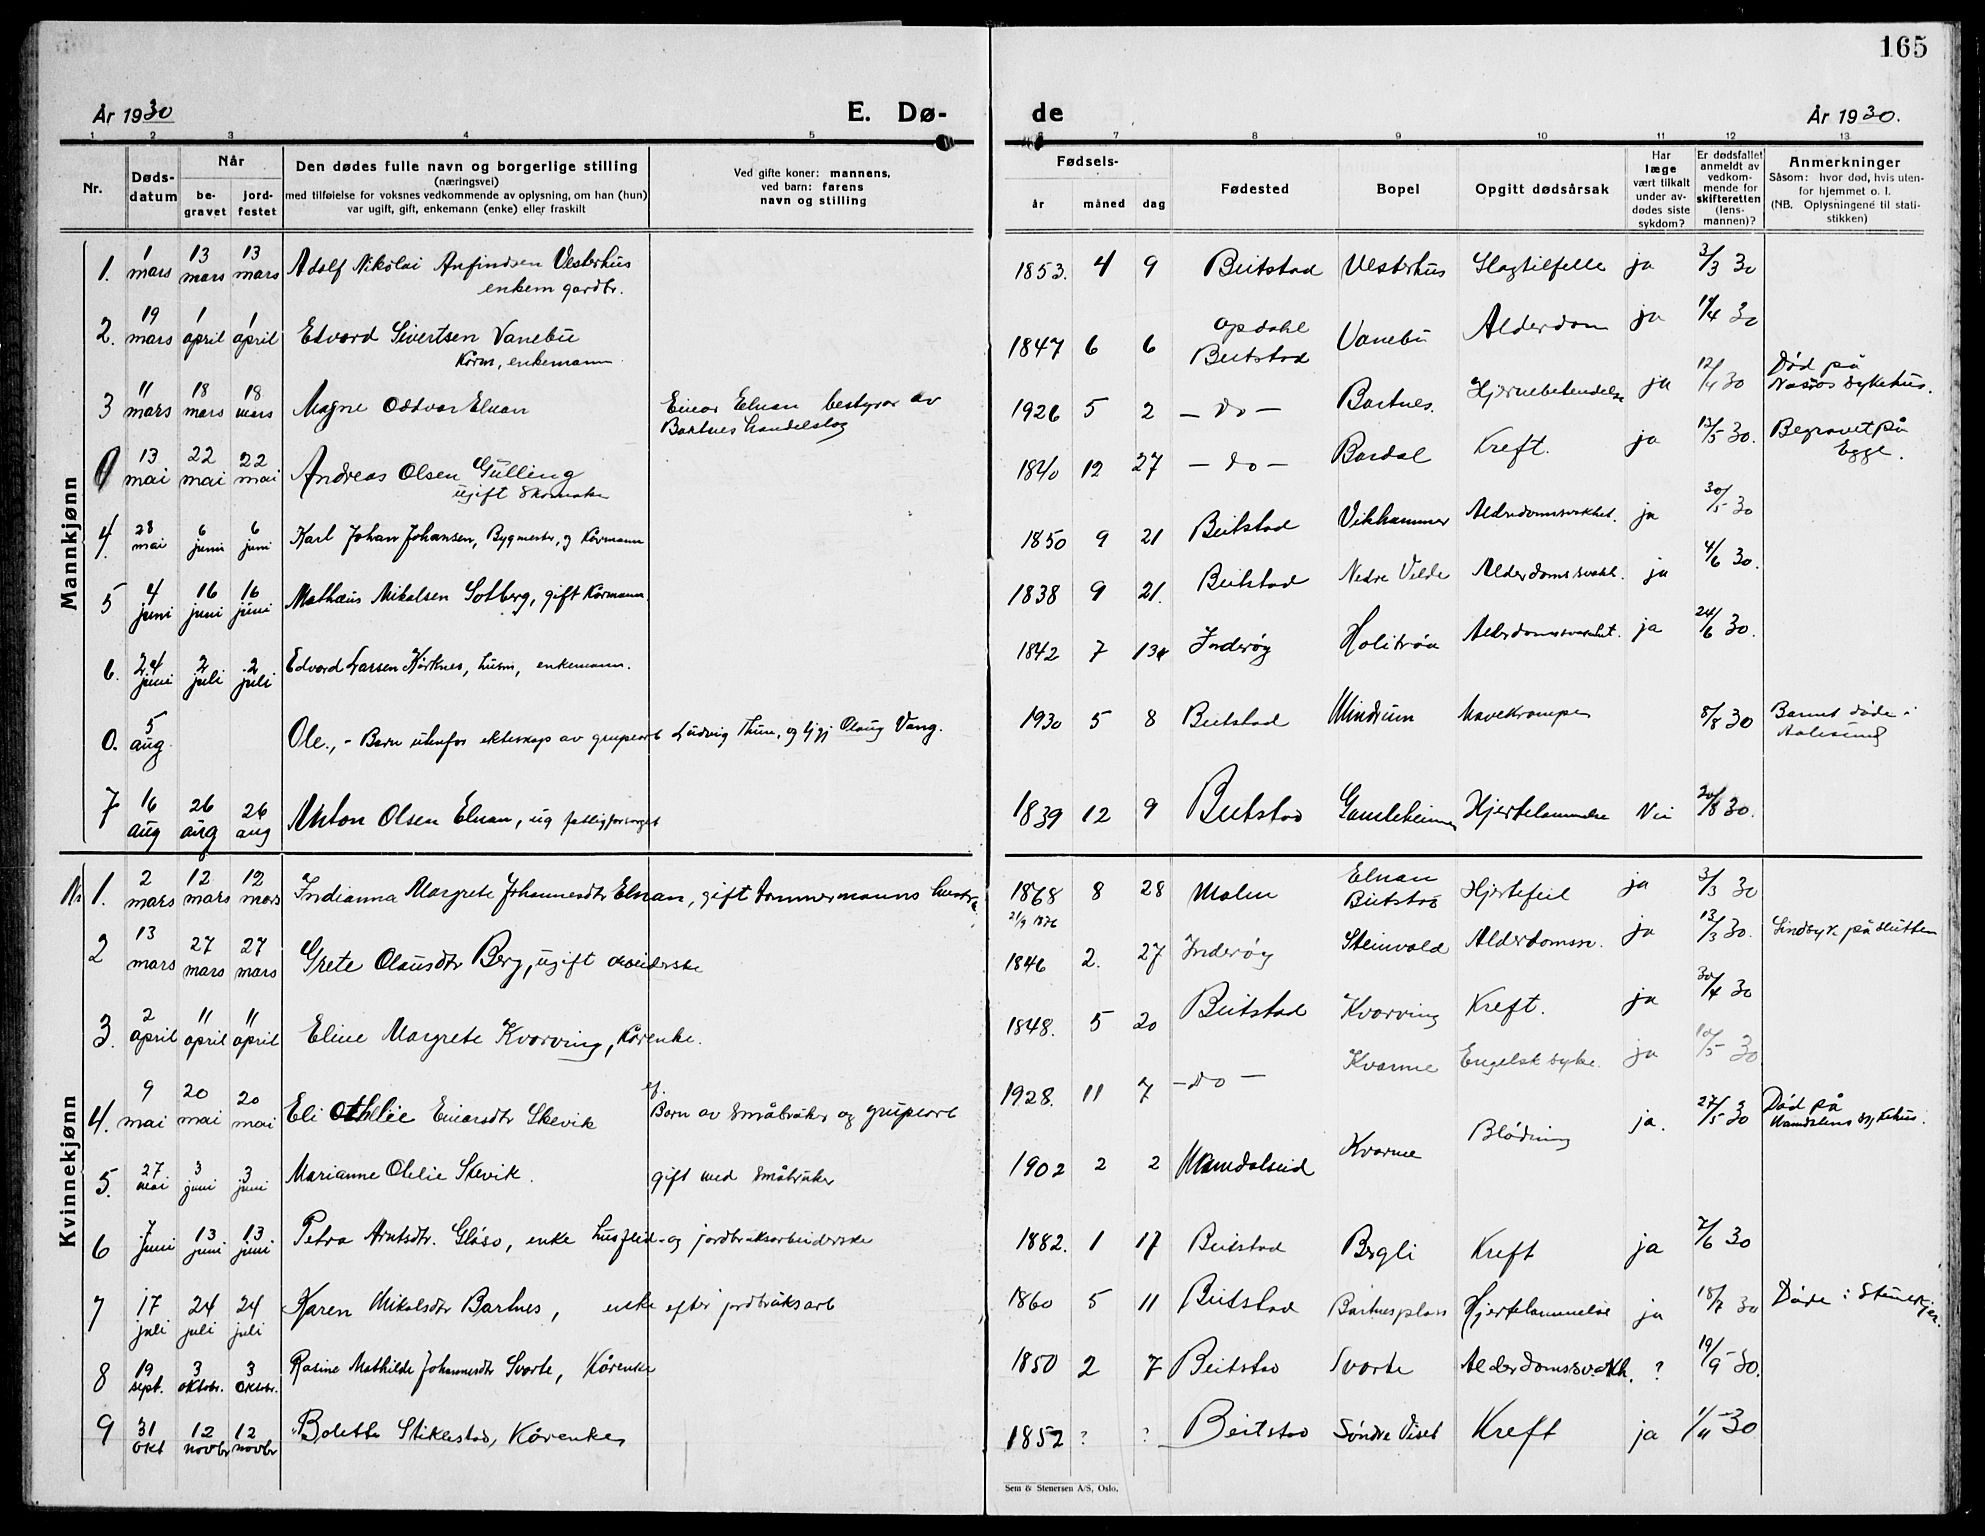 165
År 1930
E. Dø-
de
År 1930.
1 2 3 4 5 6 7 8 9 10 11 12 13
Nr.
Døds-
datum
Når
be-
gravet
jord-
festet
Den dødes fulle navn og borgerlige stilling
(næringsvei)
med tilføielse for voksnes vedkommende av oplysning, om han (hun)
var ugift, gift, enkemann (enke) eller fraskilt
Ved gifte koner: mannens,
ved barn: farens
navn og stilling
Fødsels-
år måned dag
Fødested
Bopel
Opgitt dødsårsak
Har
læge
vært tilkalt
under av-
dødes siste
sykdom?
Er dødsfallet
anmeldt av
vedkom-
mende for
skifteretten
(lens-
mannen)?
Anmerkninger
Såsom: hvor død, hvis uten-
for hjemmet o. l.
(NB. Oplysningene til stati-
stikken)
Mannkjønn
1. 1 mars 13 mars 13 mars Adolf Nikolai Anfindsen Vesterhus 1853. 4 9 Beitstad Vesterhus Slagtilfelle ja 3/3 30
enkem gardbr.
2. 19 mars 1 april 1 april Edvard Sivertsen Vanebu 1847 6 6 Opdahl Beitstad Vanebu Alderdom ja 1/4 30
Kårm, enkemann
3 11 mars 18 mars 18 mars Magne Oddvar Elnan Einar Elnan bestyrer av 1926 5 2 - do - Bartnes. Hjernebetendelse ja 12/4 30 Død på
Bartnes handelslag Namsos sykehus.
0 13 mai 22 mai 22 mai Andreas Olsen Gulling 1840 12 27 - do - Bardal Kreft. ja 13/5 30. Begravet på
ugift skomaker Egge.
4. 28 mai 6 juni 6 juni Karl Johan Johansen, Bygmester, og Kårmann 1850 9 21 Beitstad Vikhammer ja 30/5 30
5 4 juni 16 juni 16 juni Mathæus Mikalsen Solberg, gift Kårmann 1838 9 21. Beitstad Nedre Velde Alderdomssvakh. ja 4/6 30.
6. 24 juni 2 juli 2 juli Edvard Larsen Kjerknes, husm, enkemann. 1842 7 13 Inderøy ja 24/6 30.
0. 5 aug. Ole., - Barn utenfor ekteskap av grubearb Ludvig Thun, og pj Olaug Vang. 1930 5 8 Beitstad Mindrum Mavekramper 8/8 30 Barnet døde i
Aalesund
7 16 aug 26 aug 26 aug Anton Olsen Elnan, ug fattigforsørget 1839 12 9 Beitstad Gamleheimen Hjertelammelse Nei 20/8 30.
Kvinnekjønn
Nr 1. 2 mars 12 mars 12 mars Indianna Margrete Johannesdtr Elnan, gift tømmermanns hustru 1868 8 28 Malm Elnan Beitstad Hjertefeil ja 3/3 30
21/9 1876
2 13 mars 27 mars 27 mars Grete Olausdtr Berg, ugift arbeiderske 1846 2. 27 Inderøy Steinvald Alderdomssv. ja 13/3 30. Sindsyk på slutten
3. 2 april 11 april 11 april Eline Margrete Kvarving, Kårenke. 1848. 5 20 Beitstad Kvarving Kreft. ja 30/4 30
4. 9 mai 20 mai 20 mai Eli Othelie Einarsdtr Skevik Barn av småbruker og grubearb 1928. 11 7 - do - Kvarme Engelsk syke. ja 10/5 30
5. 27 mai 3 juni 3 juni Marianne Otelie Skevik. gift med småbruker 1902 2 2 Namdalseid Kvarme Blødning ja. 27/5 30 Død på
Namdalens sykehus.
6 7 juni 13 juni 13 juni Petra Arntsdtr. Glåso, enke husflid- og jordbruksarbeiderske 1882. 1 17 Beitstad Bergli Kreft ja 7/6 30
7 17 juli 24 juli 24 juli Karen Mikalsdtr Bartnes, enke efter jordbruksarb 1860 5 11 Beitstad Bartnesplass Hjertelammelse ja 18/7 30 Døde i Steinkjer.
8 19 sept. 3 oktobr. 3 oktbr. Rasine Mathilde Johannesdtr Svarte, Kårenke 1850 2 7 Beitstad Svarte Alderdomssvakh. ? 19/9 30.
9 31 okt 12 novbr 12 novbr Bolette Stiklestad, Kårenke 1852 ? ? Beitstad Søndre Viset Kreft ja 1/11 30
Sem & Stenersen A/S, Oslo.